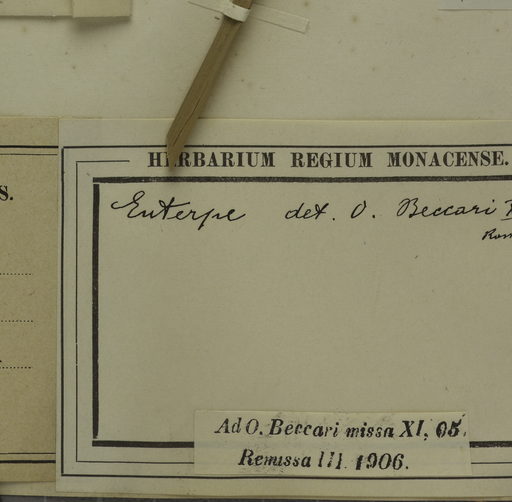 S.
HERBARIUM REGIUM MONACENSE.
Euterpe det. O. Beccari
Ad O. Beccari missa XI, 05.
Remissa III. 1906.